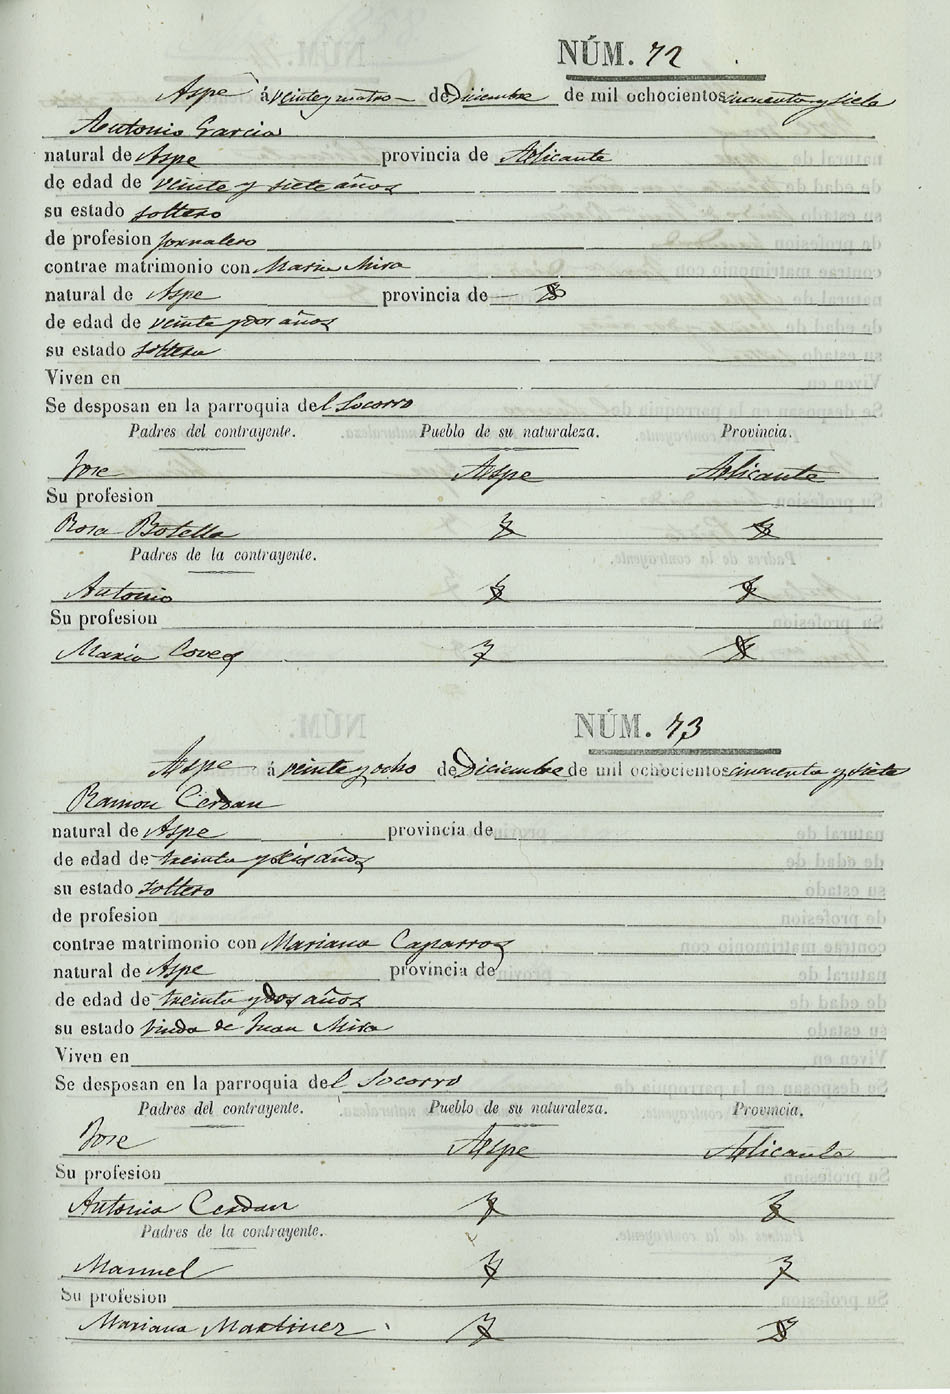 NÚM. 72
Aspe á veinte y cuatro de Diciembre de mil ochocientos cincuenta y siete
Antonio Garcia
natural de Aspe provincia de Alicante
de edad de veinte y siete años
su estado soltero
de profesion jornalero
contrae matrimonio con Maria Mira
natural de Aspe provincia de
de edad de veinte y dos años
su estado soltera
Viven en
Se desposan en la parroquia del Socorro
Padres del contrayente. Pueblo de su naturaleza. Provincia.
Jose Aspe Alicante
Su profesion
Rosa Botella
Padres de la contrayente.
Antonio
Su profesion
Maria
NÚM. 73
Aspe á veinte y ocho de Diciembre de mil ochocientos cincuenta y siete
Ramon Cerdan
natural de Aspe provincia de
de edad de treinta y seis años
su estado soltero
de profesion
contrae matrimonio con Mariana Caparros
natural de Aspe provincia de
de edad de treinta y dos años
su estado viuda de Juan Mira
Viven en
Se desposan en la parroquia del Socorro
Padres del contrayente. Pueblo de su naturaleza. Provincia.
Jose Aspe Alicante
Su profesion
Antonia Cerdan
Padres de la contrayente.
Manuel
Su profesion
Mariana Martinez